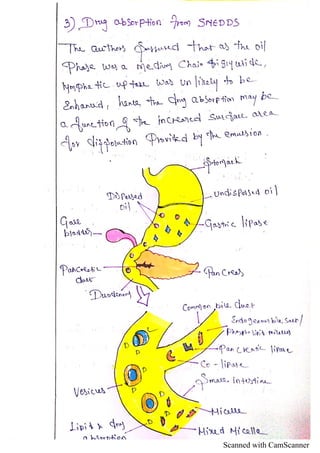 3) Drug absorption from SNEDDS
The authors that as the oil
Phase was a medium chain
lymphatic uptake was unlikely to be
Enhanced, hence the drug absorption may be
a function of the increased surface area
for Provided by the emulsion.
Stomach
Dispersed
oil
undispersed oil
Gall
bladder
Gastric lipase
Pancreatic
duct
Pancreas
Duodenum
Common bile duct
Endogenous bile salt/
Phospholipid micelles
Pancreatic lipase
Co-lipase
Small Intestine
D
D
D
D
D
Vesicles
Micelle
Lipid & drug
absorption
Mixed Micelle
Scanned with CamScanner